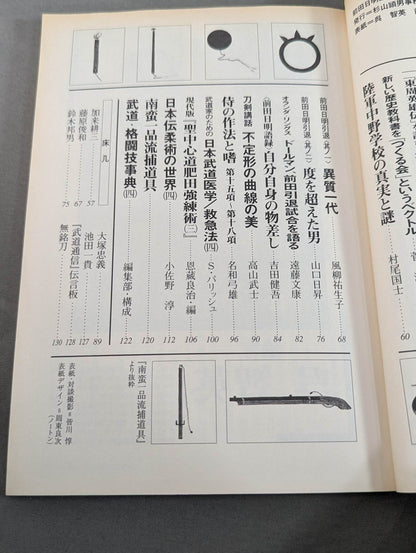 前田日明
発行=杉山頴男事
表紙=呉 智英
「東周英雄伝
新しい歴史教科書を「つくる会」というベクトル
陸軍中野学校の真実と謎 村尾国士 60
前田日明引退〈其ノ一〉 異質一代 風柳祐生子 68
前田日明引退〈其ノ二〉 度を超えた男 山口日昇 76
オランダ リングス ドールマン、前田引退試合を語る 遠藤文康 82
〈前田日明語録〉自分自身の物差し 吉田健吾 84
刀剣講話 不定形の曲線の美 高山武士 90
侍の作法と嗜 第十五項〜第十八項 名和弓雄 96
武道家のための 日本武道医学/救急法〈四〉 S・パリッシュ 100
現代版『聖中心道肥田強練術〈三〉』 恩蔵良治・編 106
日本伝柔術の世界〈四〉 小佐野 淳 112
南蛮一品流捕道具 120
武道・格闘技事典〈四〉 編集部 構成 122
床几
加来耕三 57
藤原俊和 67
鈴木邦男 75
大塚忠義 89
池田一貴 127
『武道通信』伝言板 128
無銘刀 130
『南蛮一品流捕道具』
より抜粋
表紙・対談撮影=皆川 惇
表紙デザイン=周東良次
(ノートン)